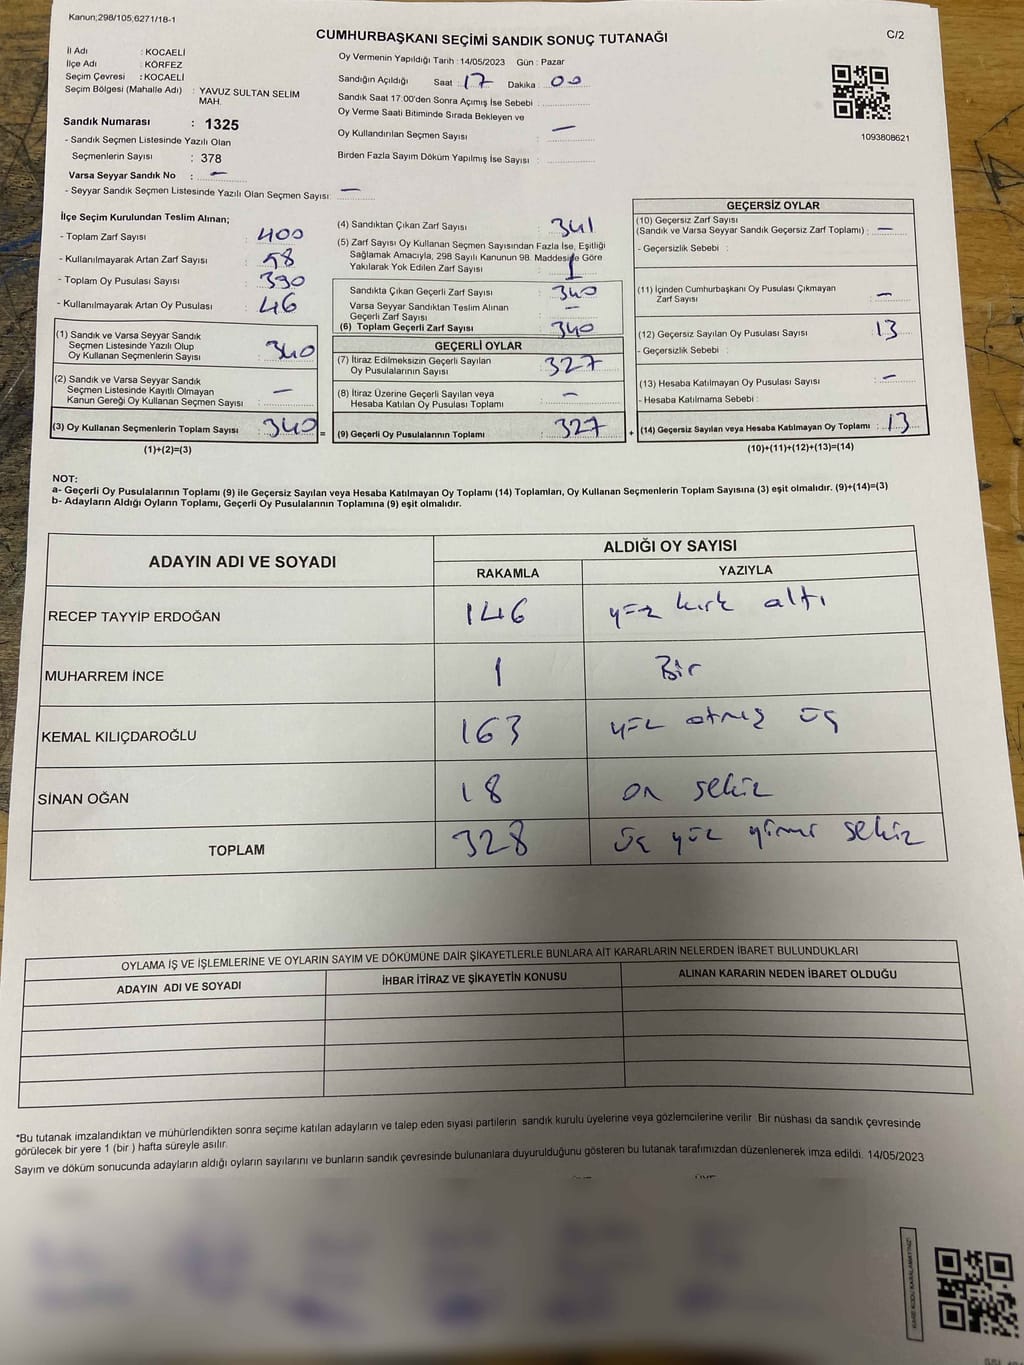 Kanun;298/105,6271/18-1
CUMHURBAŞKANI SEÇİMİ SANDIK SONUÇ TUTANAĞI
C/2
İl Adı : KOCAELİ
İlçe Adı : KÖRFEZ
Seçim Çevresi : KOCAELİ
Seçim Bölgesi (Mahalle Adı) : YAVUZ SULTAN SELİM
MAH.
Sandık Numarası : 1325
- Sandık Seçmen Listesinde Yazılı Olan
Seçmenlerin Sayısı : 378
Varsa Seyyar Sandık No : —
- Seyyar Sandık Seçmen Listesinde Yazılı Olan Seçmen Sayısı: —
Oy Vermenin Yapıldığı Tarih : 14/05/2023 Gün : Pazar
Sandığın Açıldığı Saat : 17 Dakika : 00
Sandık Saat 17:00'den Sonra Açımış İse Sebebi :
Oy Verme Saati Bitiminde Sırada Bekleyen ve
Oy Kullandırılan Seçmen Sayısı : —
Birden Fazla Sayım Döküm Yapılmış İse Sayısı :
1093808621
İlçe Seçim Kurulundan Teslim Alınan;
- Toplam Zarf Sayısı : 400
- Kullanılmayarak Artan Zarf Sayısı : 58
- Toplam Oy Pusulası Sayısı : 390
- Kullanılmayarak Artan Oy Pusulası : 46
(1) Sandık ve Varsa Seyyar Sandık
Seçmen Listesinde Yazılı Olup
Oy Kullanan Seçmenlerin Sayısı : 340
(2) Sandık ve Varsa Seyyar Sandık
Seçmen Listesinde Kayıtlı Olmayan
Kanun Gereği Oy Kullanan Seçmen Sayısı : —
(3) Oy Kullanan Seçmenlerin Toplam Sayısı : 340 =
(1)+(2)=(3)
(4) Sandıktan Çıkan Zarf Sayısı : 341
(5) Zarf Sayısı Oy Kullanan Seçmen Sayısından Fazla İse, Eşitliği
Sağlamak Amacıyla, 298 Sayılı Kanunun 98. Maddesine Göre
Yakılarak Yok Edilen Zarf Sayısı : 1
Sandıkta Çıkan Geçerli Zarf Sayısı : 340
Varsa Seyyar Sandıktan Teslim Alınan
Geçerli Zarf Sayısı : —
(6) Toplam Geçerli Zarf Sayısı : 340
GEÇERLİ OYLAR
(7) İtiraz Edilmeksizin Geçerli Sayılan
Oy Pusulalarının Sayısı : 327
(8) İtiraz Üzerine Geçerli Sayılan veya
Hesaba Katılan Oy Pusulası Toplamı : —
(9) Geçerli Oy Pusulalarının Toplamı : 327 +
GEÇERSİZ OYLAR
(10) Geçersiz Zarf Sayısı
(Sandık ve Varsa Seyyar Sandık Geçersiz Zarf Toplamı) : —
- Geçersizlik Sebebi :
(11) İçinden Cumhurbaşkanı Oy Pusulası Çıkmayan
Zarf Sayısı : —
(12) Geçersiz Sayılan Oy Pusulası Sayısı : 13
- Geçersizlik Sebebi :
(13) Hesaba Katılmayan Oy Pusulası Sayısı : —
- Hesaba Katılmama Sebebi :
(14) Geçersiz Sayılan veya Hesaba Katılmayan Oy Toplamı : 13
(10)+(11)+(12)+(13)=(14)
NOT:
a- Geçerli Oy Pusulalarının Toplamı (9) ile Geçersiz Sayılan veya Hesaba Katılmayan Oy Toplamı (14) Toplamları, Oy Kullanan Seçmenlerin Toplam Sayısına (3) eşit olmalıdır. (9)+(14)=(3)
b- Adayların Aldığı Oyların Toplamı, Geçerli Oy Pusulalarının Toplamına (9) eşit olmalıdır.
ADAYIN ADI VE SOYADI
ALDIĞI OY SAYISI
RAKAMLA YAZIYLA
RECEP TAYYİP ERDOĞAN 146 yüz kırk altı
MUHARREM İNCE 1 Bir
KEMAL KILIÇDAROĞLU 163 yüz atmış üç
SİNAN OĞAN 18 on sekiz
TOPLAM 328 üç yüz yirmi sekiz
OYLAMA İŞ VE İŞLEMLERİNE VE OYLARIN SAYIM VE DÖKÜMÜNE DAİR ŞİKAYETLERLE BUNLARA AİT KARARLARIN NELERDEN İBARET BULUNDUKLARI
ADAYIN ADI VE SOYADI İHBAR İTİRAZ VE ŞİKAYETİN KONUSU ALINAN KARARIN NEDEN İBARET OLDUĞU
*Bu tutanak imzalandıktan ve mühürlendikten sonra seçime katılan adayların ve talep eden siyasi partilerin sandık kurulu üyelerine veya gözlemcilerine verilir. Bir nüshası da sandık çevresinde
görülecek bir yere 1 (bir ) hafta süreyle asılır.
Sayım ve döküm sonucunda adayların aldığı oyların sayılarını ve bunların sandık çevresinde bulunanlara duyurulduğunu gösteren bu tutanak tarafımızdan düzenlenerek imza edildi. 14/05/2023